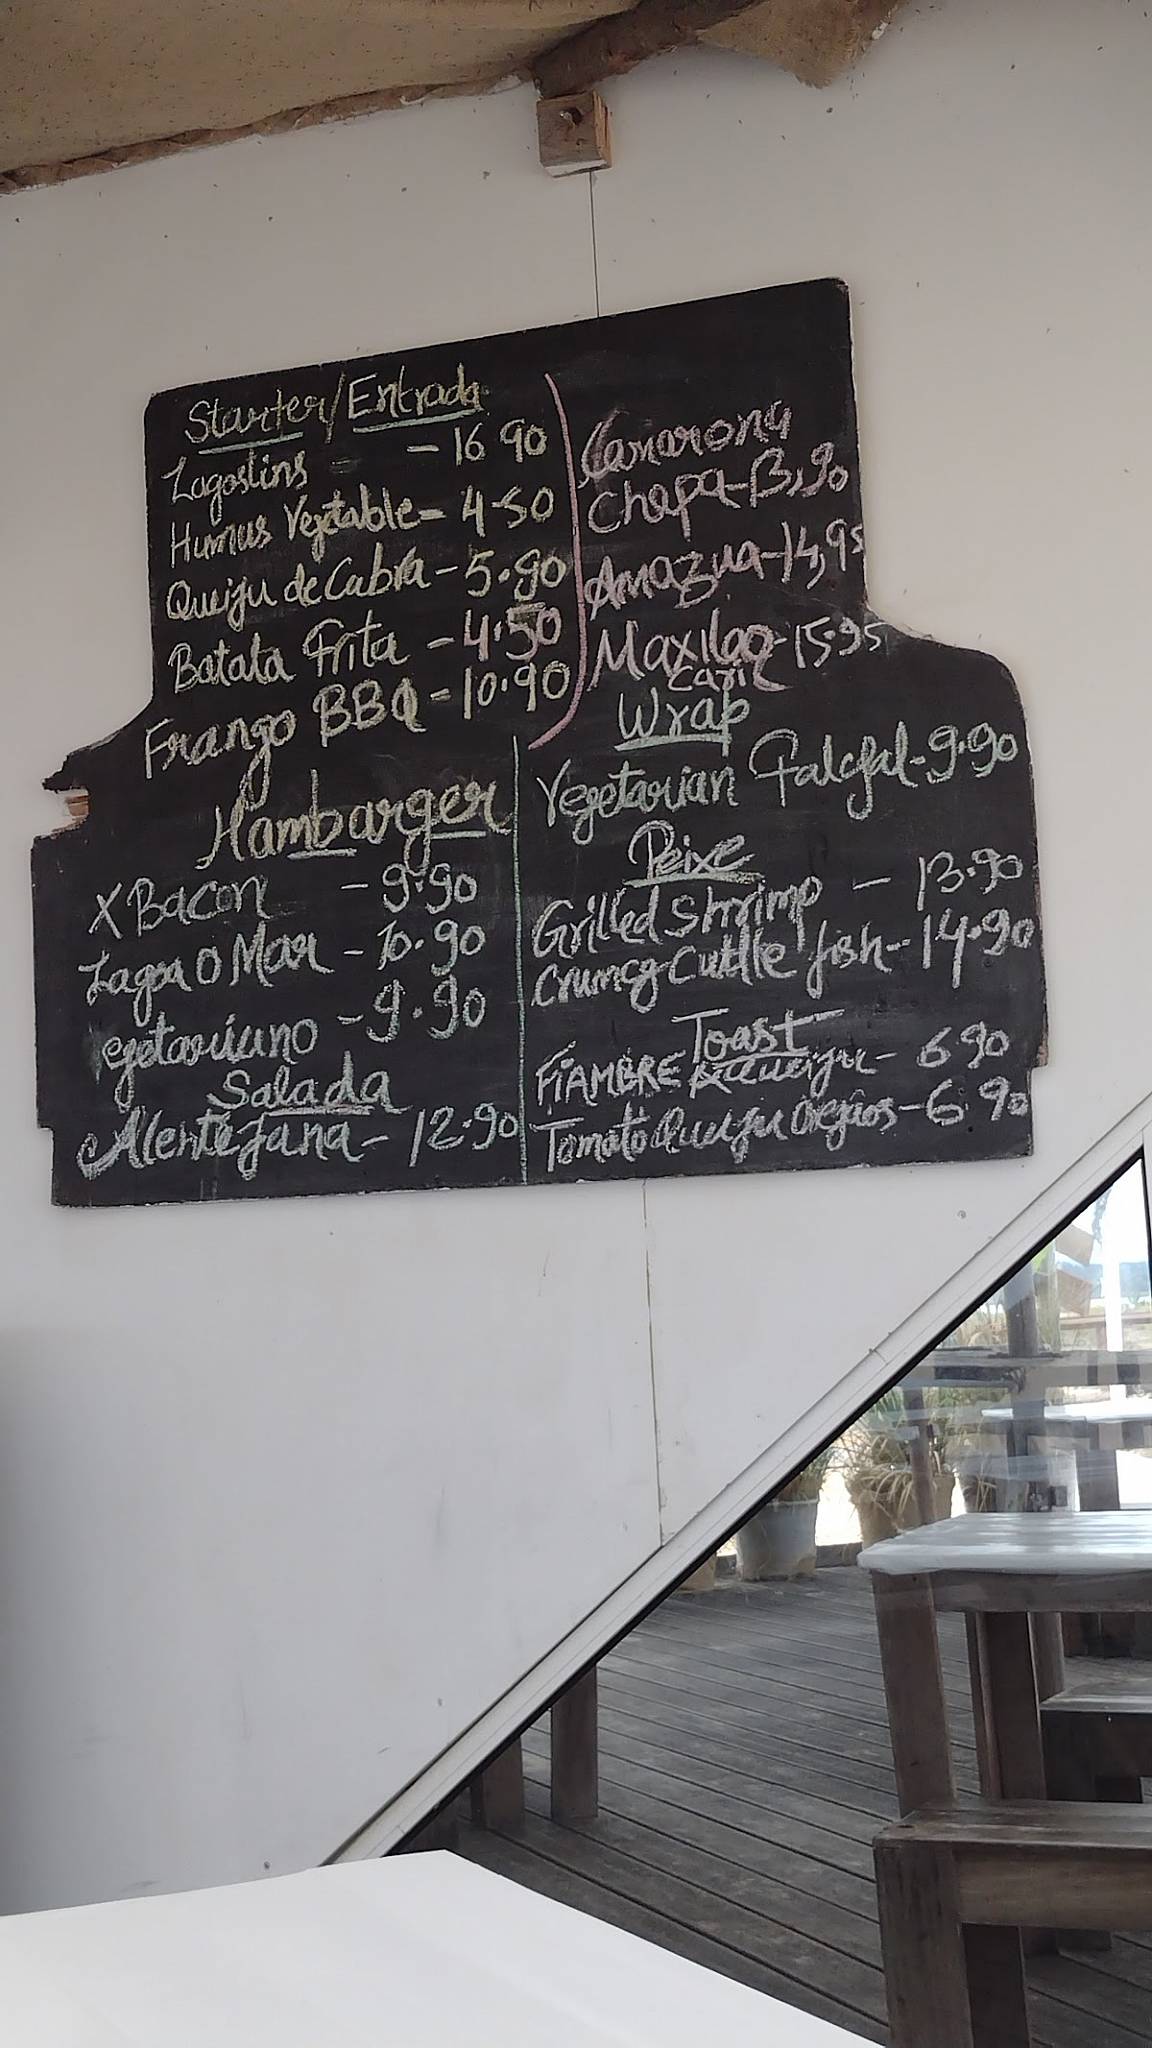 Starter/Entrada
Lagostins - - 16 90
Humus Vegetable= 4-50
Queiju de Cabra - 5.90
Batata Frita - 4.50
Frango BBQ - 10.90
Camarona
Chapa - 13,90
Amazua - 14,95
Maxilao - 15.95
caril
Hambarger
X Bacon - 9.90
Lagoa O Mar - 10.90
egetariano - 9.90
Salada
Alentejana - 12.90
Wrap
Vegetarian Falefal - 9.90
Peixe
Grilled Shrimp - 13.90
Crumcy Cuttle fish - 14.90
Toast
FIAMBRE Queiju - 6 90
Tomato Queiju oregãos - 6.90